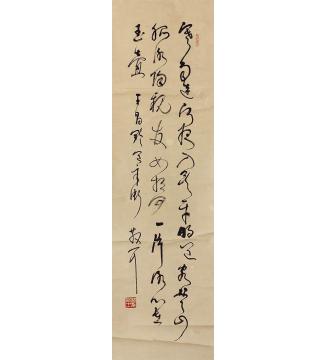 寒雨連江夜入吳平明送客楚山
孤洛陽親友如相問一片冰心在
玉壺 王昌齡